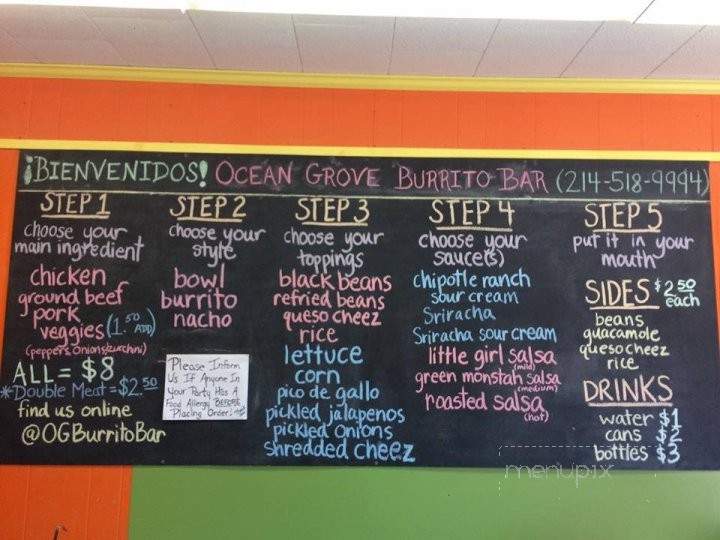 ¡BIENVENIDOS! OCEAN GROVE BURRITO BAR (214-518-9994)
STEP 1
choose your
main ingredient
chicken
ground beef
pork
veggies (1.50 ADD)
(peppers, onions/zucchni)
ALL = $8
*Double Meat = $2.50
find us online
@OGBurritoBar
STEP 2
choose your
style
bowl
burrito
nacho
Please Inform
Us If Anyone In
Your Party Has A
Food Allergy BEFORE
Placing Order!
STEP 3
choose your
toppings
black beans
refried beans
queso cheez
rice
lettuce
corn
pico de gallo
pickled jalapenos
pickled onions
shredded cheez
STEP 4
choose your
sauce(s)
chipotle ranch
sour cream
Sriracha
Sriracha sour cream
little girl salsa
(mild)
green monstah salsa
(medium)
roasted salsa
(hot)
STEP 5
put it in your
mouth
SIDES $2.50 each
beans
guacamole
queso cheez
rice
DRINKS
water $1
cans $2
bottles $3
menupix